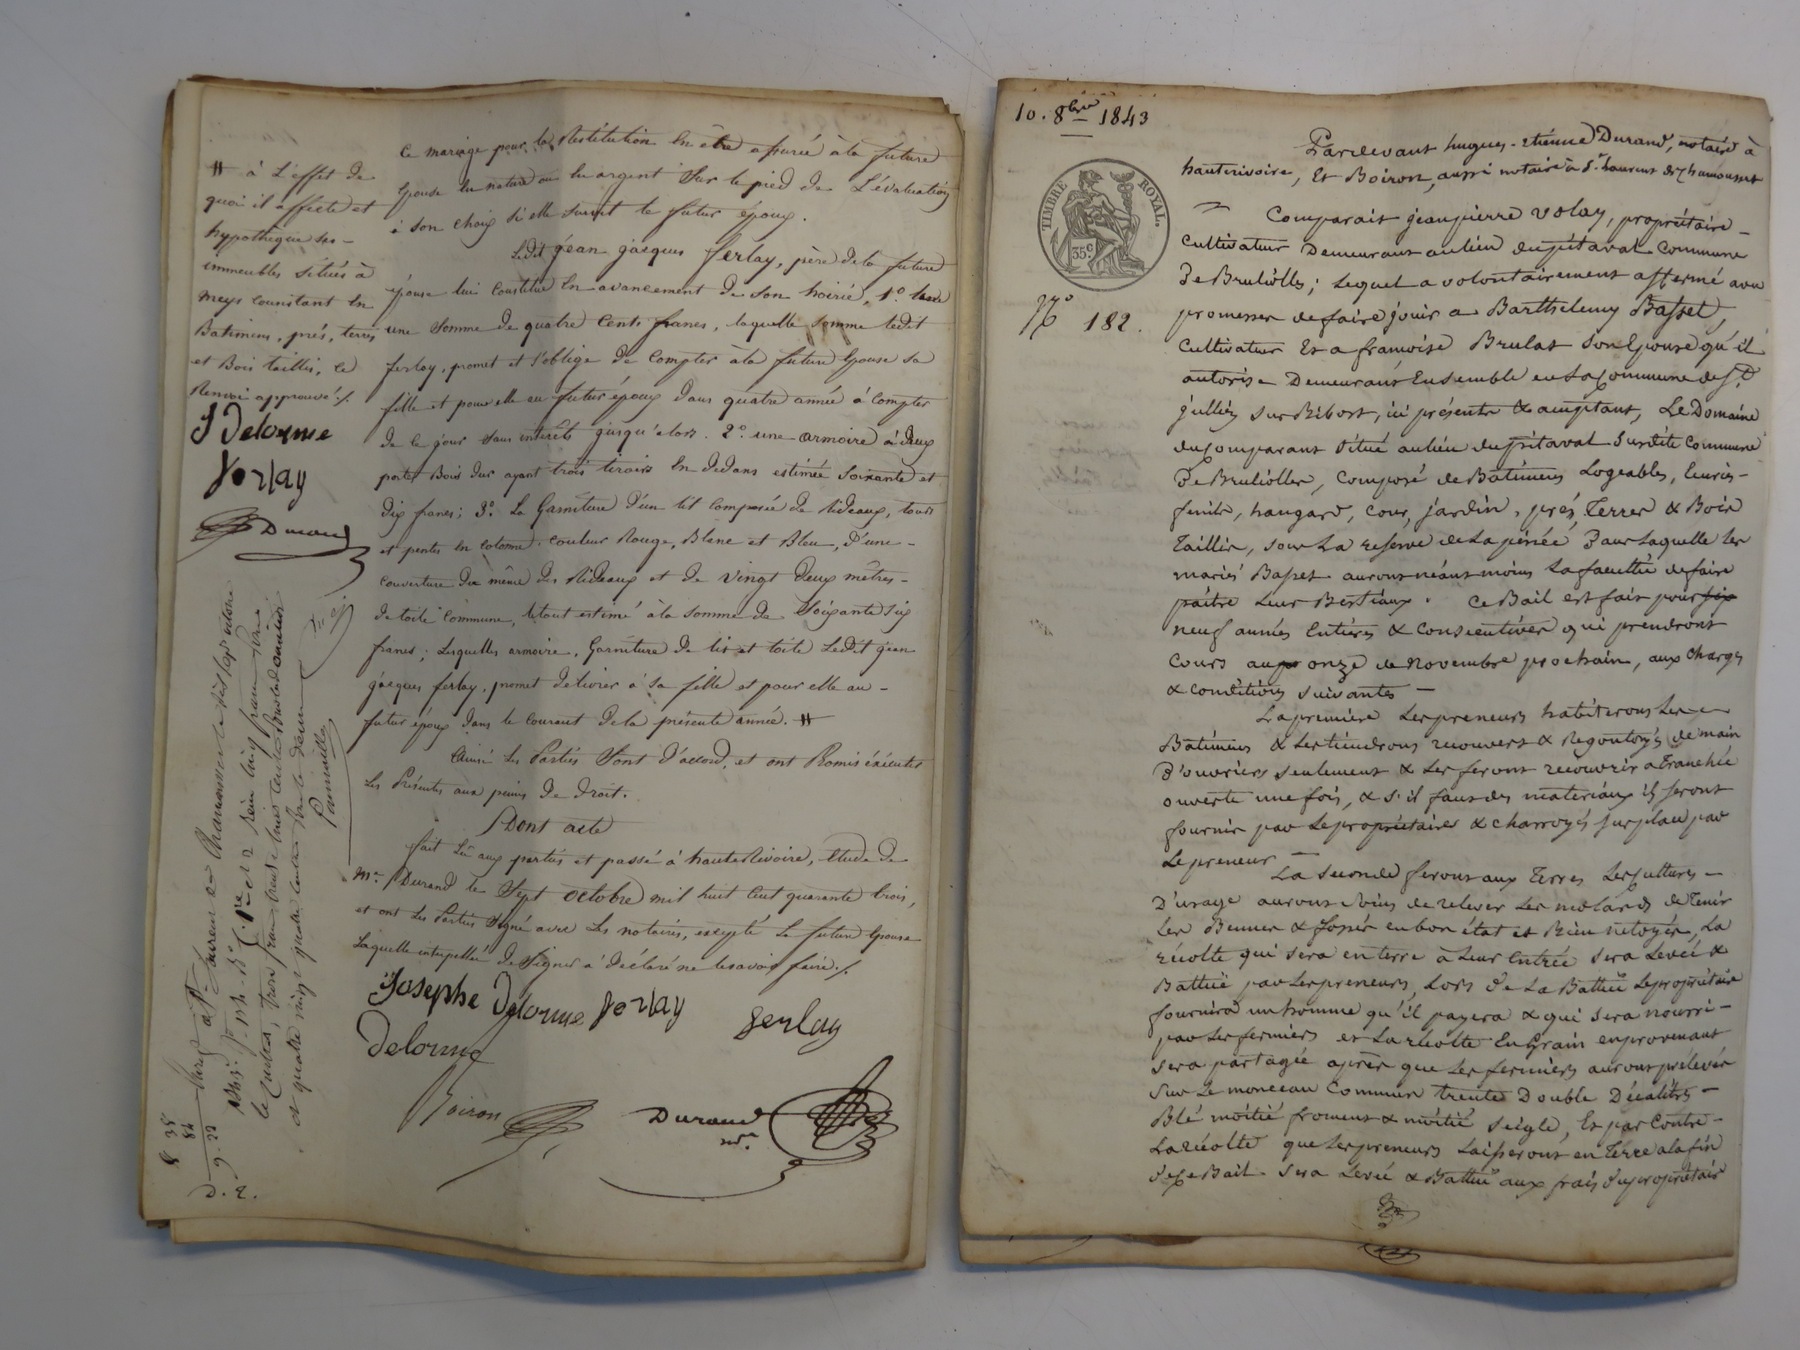 ce mariage pour la Restitution en être opérée à la future
Epouse en nature ou en argent sur le pied de l'évaluation
à son choix si elle survit le futur époux.
Ledit jean jacques ferlay, père de la future
épouse lui Constitue en avancement de son hoirie, 1.o
une Somme de quatre Cents francs, laquelle somme ledit
ferlay, promet et s'oblige de Compter à la future Epouse sa
fille et pour elle au futur époux dans quatre année à Compter
de ce jour sans intérêts jusqu'alors. 2.o une armoire à deux
portes Bois dur ayant trois tiroirs en dedans estimée Soixante et
dix francs; 3.o La Garniture d'un lit Composée de Rideaux, tours
et pentes en Cotonne Couleur Rouge, Blanc et Bleu, D'une-
Couverture du même des Rideaux et de vingt deux mètres-
de toile Commune, le tout estimé à la somme de Soixante six
francs; Lesquelles armoire, Garniture de lit et toile Ledit jean
jacques ferlay, promet délivrer à sa fille et pour elle au-
futur époux dans le courant de la présente année. #
Ainsi les Parties sont d'accord, et ont Promis éxécuter
Les Présentes aux peines de droit.
Dont acte
fait Lu aux parties et passé à hauterivoire, Etude de
Me. Durand le Sept octobre mil huit Cent quarante trois,
et ont les Parties Signé avec les notaires, excepté la future Epouse
Laquelle interpellée de Signer a déclaré ne le savoir faire./.
Josephe Delorme ferlay
ferlay
Delorme
Boiron
Durand
nre.
# à L'effet de
quoi il affecte et
hypothèque ses-
immeubles Situés à
Meys consistant en
Batimens, prés, terres
et Bois taillis, ce
Renvoi approuvé./.
J Delorme
ferlay
Durand
8 35
84
9. 22
D. 2.
10. 8bre 1843
TIMBRE ROYAL.
35 c.
No 182.
Pardevant hugues-etienne Durand, notaire à
hauterivoire, Et Boiron, aussi notaire à St. Laurent de Chamousset
Comparait jeanpierre Volay, propriétaire-
Cultivateur Demeurant au lieu du pitaval Commune
De Brulliolles; Lequel a volontairement affermé avec
promesses de faire jouir a Barthelemy Basset,
Cultivateur Et a francoise Brulas son Epouse qu'il
autorise Demeurant Ensemble en la Commune de St.
jullien sur Bibost, ici présents & acceptant, Le Domaine
du Comparant situé au lieu du pitaval Susdite Commune
De Brulliolles, Composé de Batimens Logeables, Ecuries-
fenils, hangard, Cour, jardin, prés, Terres & Bois
Taillis, sous la reserve de la pinée Dans laquelle les
mariés Basset auront néant moins la faculté de faire
paitre Leur Bestiaux. Ce Bail est fait pour six
neuf années Entières & Consecutives qui prendront
Cours au onze de novembre prochain, aux Charges
& conditions suivantes-
La premiere Les preneurs habiterons les
Batimens & les tiendrons recouvert & Regontoyés de main
D'ouvriers seulement & les feront recouvrir a Tranchée
ouverte une fois, & s'il faut des materiaux ils seront
fournis par Le propriétaires & charroyés sur place par
Le preneur
La Seconde feront aux Terres Les Cultures-
D'usage auront soins de relever les molards de Tenir
Les Bennes & fossés en bon état et Bien netoyés, La
récolte qui sera en terre à Leur Entrée sera Levée &
Battue par Les preneurs, Lors de La Battue Le propriétaire
fournira un homme qu'il payera & qui sera nourri-
par Les fermiers et La récolte En Grain en provenant
sera partagée après que Les fermiers auront prélevés
Sur Le monceau Commun trente Double Décalitres-
Blé moitié froment & moitié seigle, Et par Contre-
La récolte que Les preneurs Laisseront en Terre a la fin
de ce Bail sera Levée & Battue aux frais du propriétaire